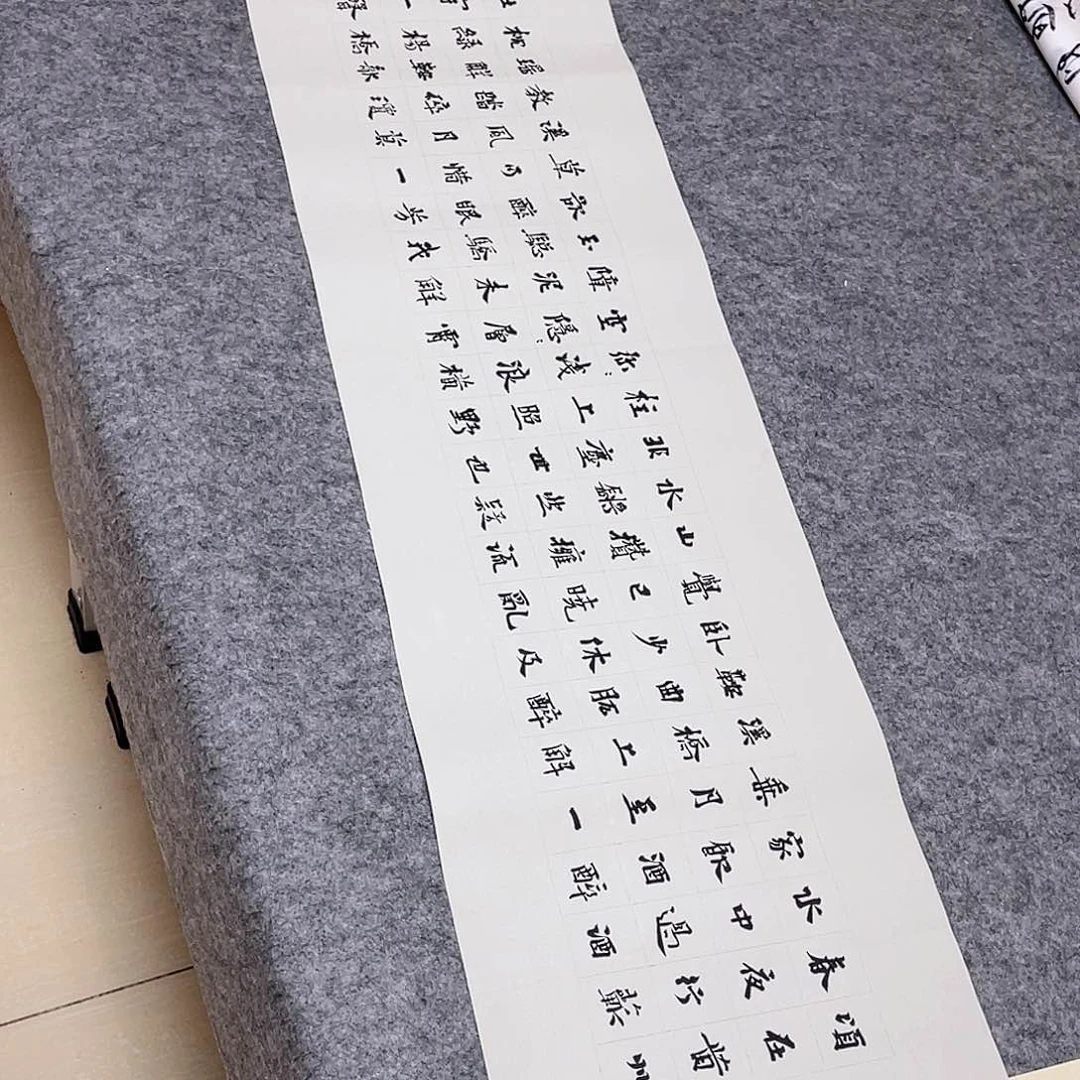 頃在黃州
春夜行蘄
水中過酒
家飲酒醉
乘月至一
溪橋上解
鞍曲肱醉
卧少休及
覺已曉亂
山攢擁流
水鏘然疑
非塵世也
柱上照野
弥弥淺浪橫
空隱隱層霄
障泥未解
玉驄驕我
欲醉眠芳
草可惜一
溪風月莫
教踏碎瓊
瑤解鞍欹
枕綠楊橋
杜宇一聲